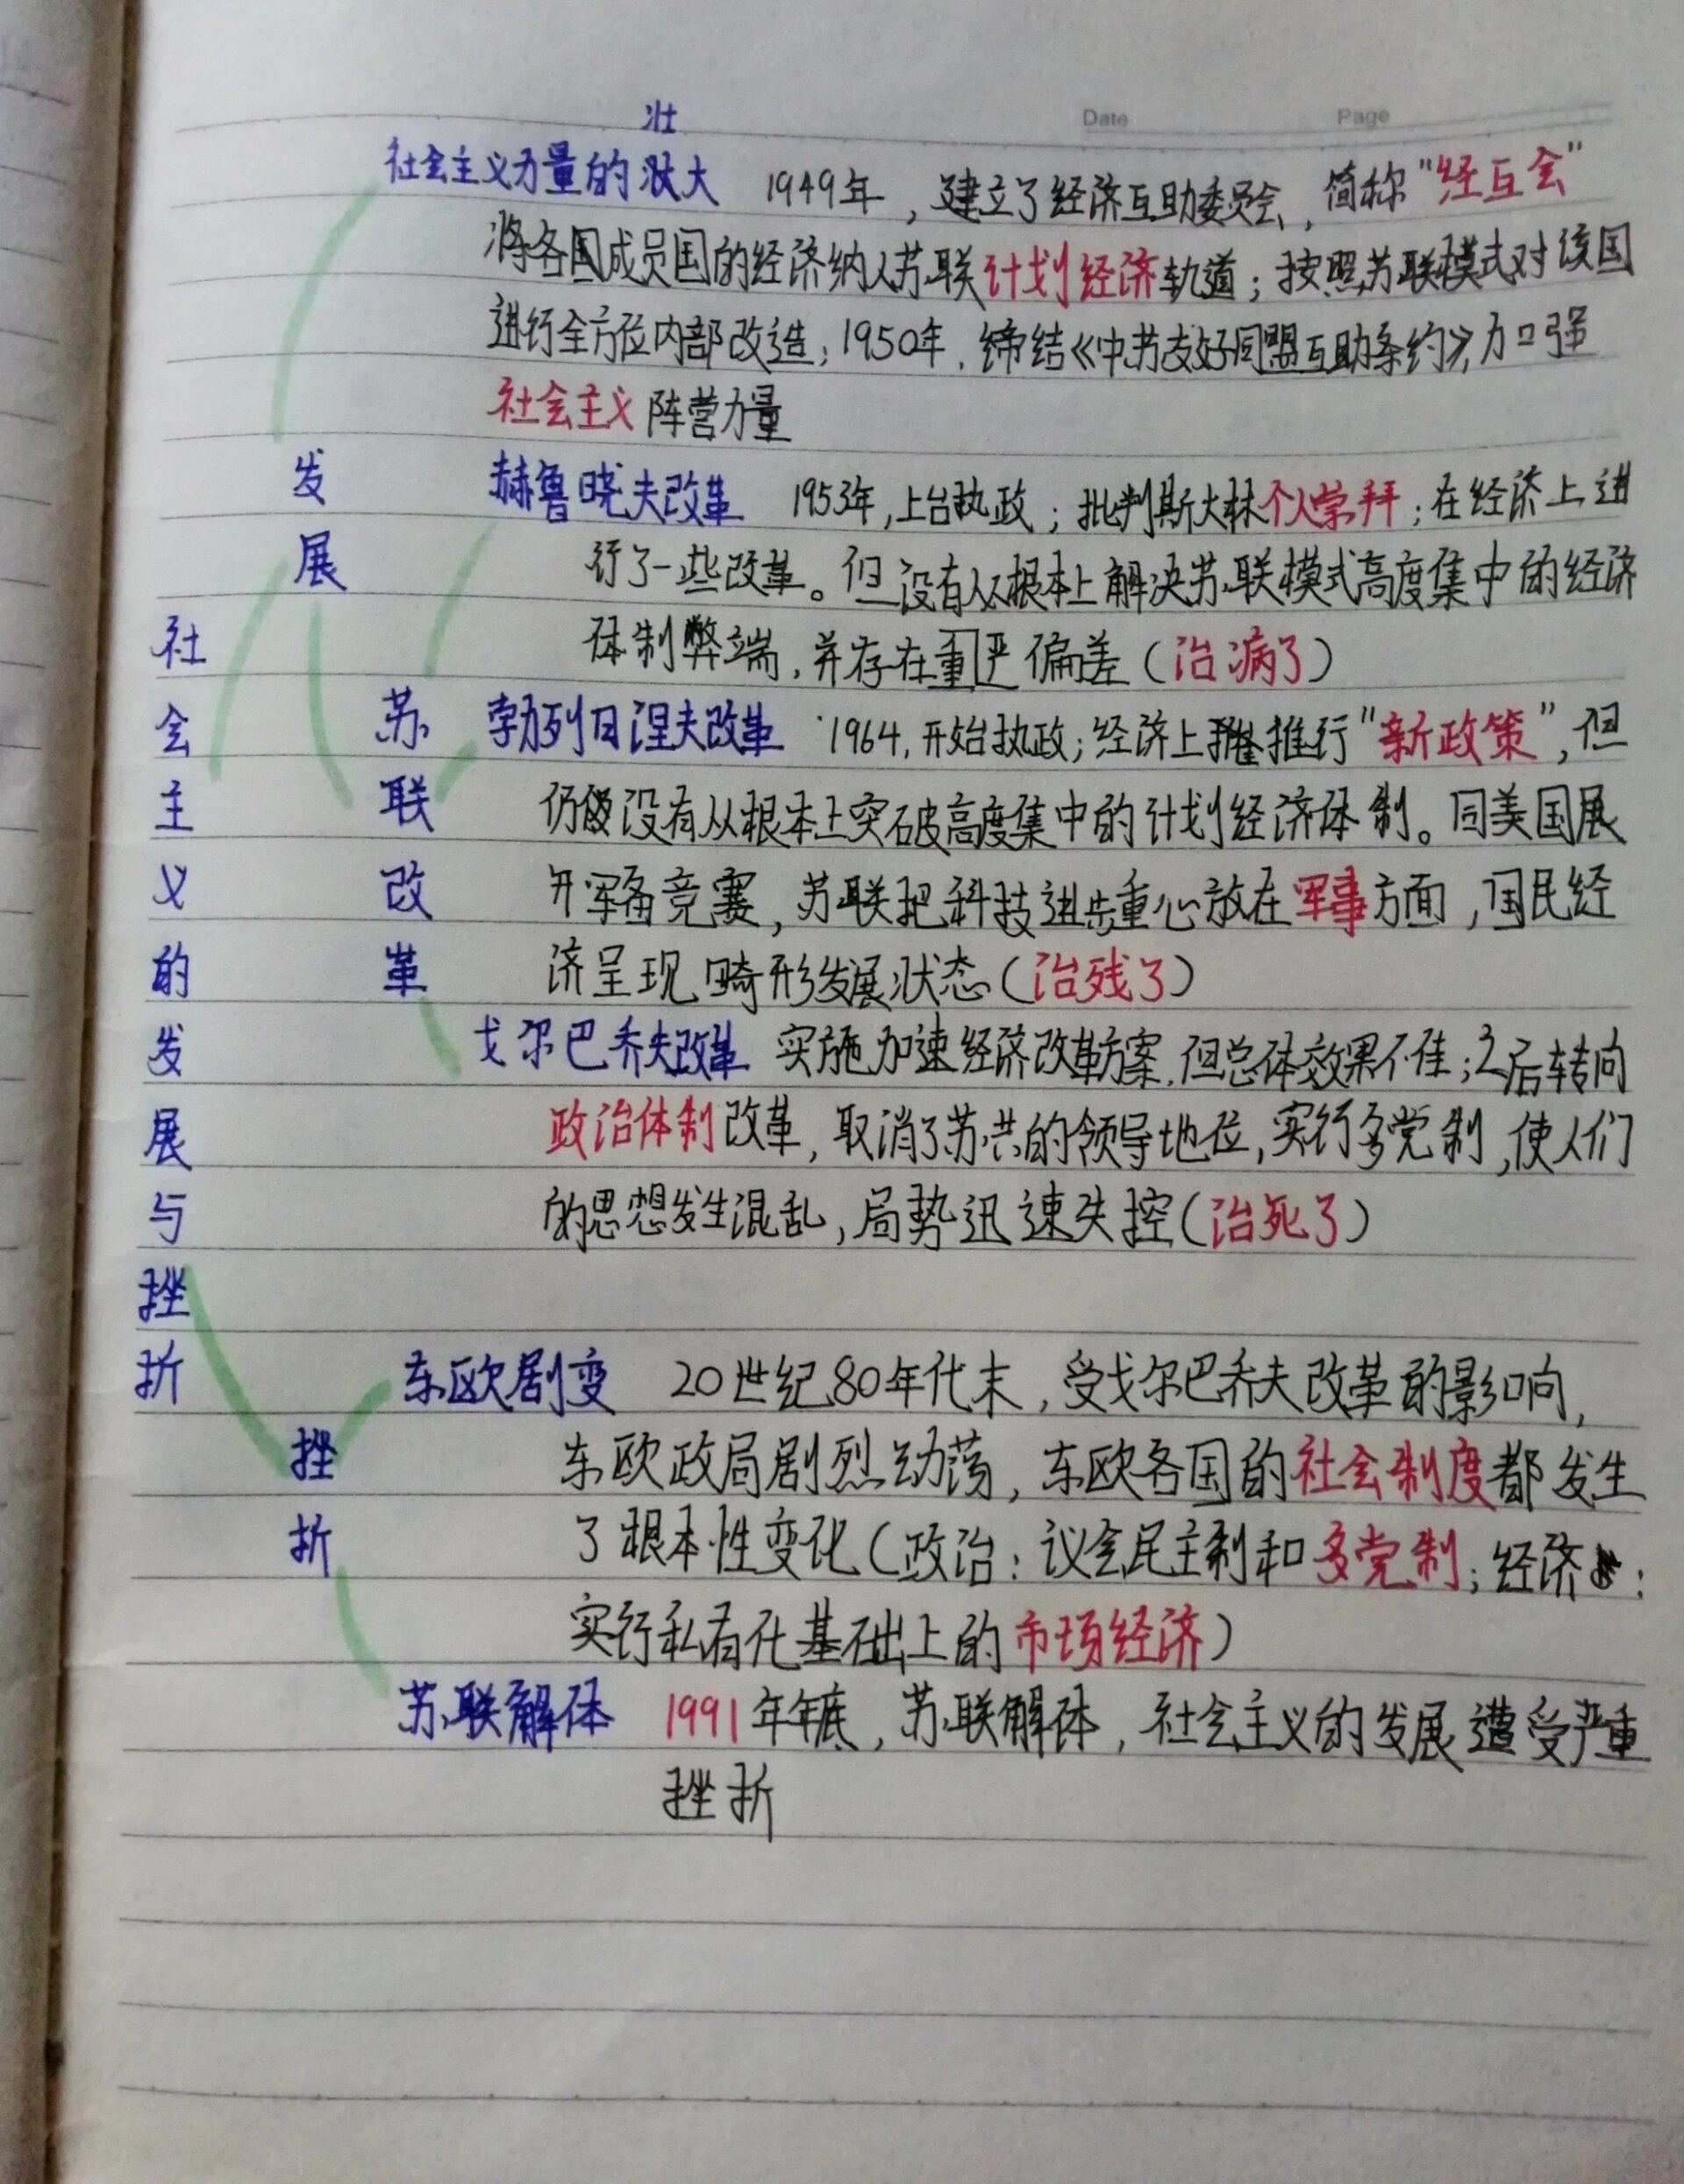 Date Page
壮
社会主义力量的壮大 1949年，建立了经济互助委员会，简称“经互会”
将各国成员国的经济纳入苏联计划经济轨道；按照苏联模式对该国
进行全方位内部改造；1950年，缔结《中苏友好同盟互助条约》，加强
社会主义阵营力量
发展
赫鲁晓夫改革 1953年，上台执政；批判斯大林个人崇拜；在经济上进
行了一些改革。但没有从根本上解决苏联模式高度集中的经济
体制弊端，并存在重严偏差（治病了）
社会主义的发展与挫折
苏联改革
勃列日涅夫改革 1964，开始执政；经济上推行“新政策”，但
仍没有从根本上突破高度集中的计划经济体制。同美国展
开军备竞赛，苏联把科技进步重心放在军事方面，国民经
济呈现畸形发展状态（治残了）
戈尔巴乔夫改革 实施加速经济改革方案，但总体效果不佳；之后转向
政治体制改革，取消了苏共的领导地位，实行多党制，使人们
的思想发生混乱，局势迅速失控（治死了）
挫折
东欧剧变 20世纪80年代末，受戈尔巴乔夫改革的影响，
东欧政局剧烈动荡，东欧各国的社会制度都发生
了根本性变化（政治：议会民主制和多党制；经济：
实行私有化基础上的市场经济）
苏联解体 1991年年底，苏联解体，社会主义的发展遭受严重
挫折